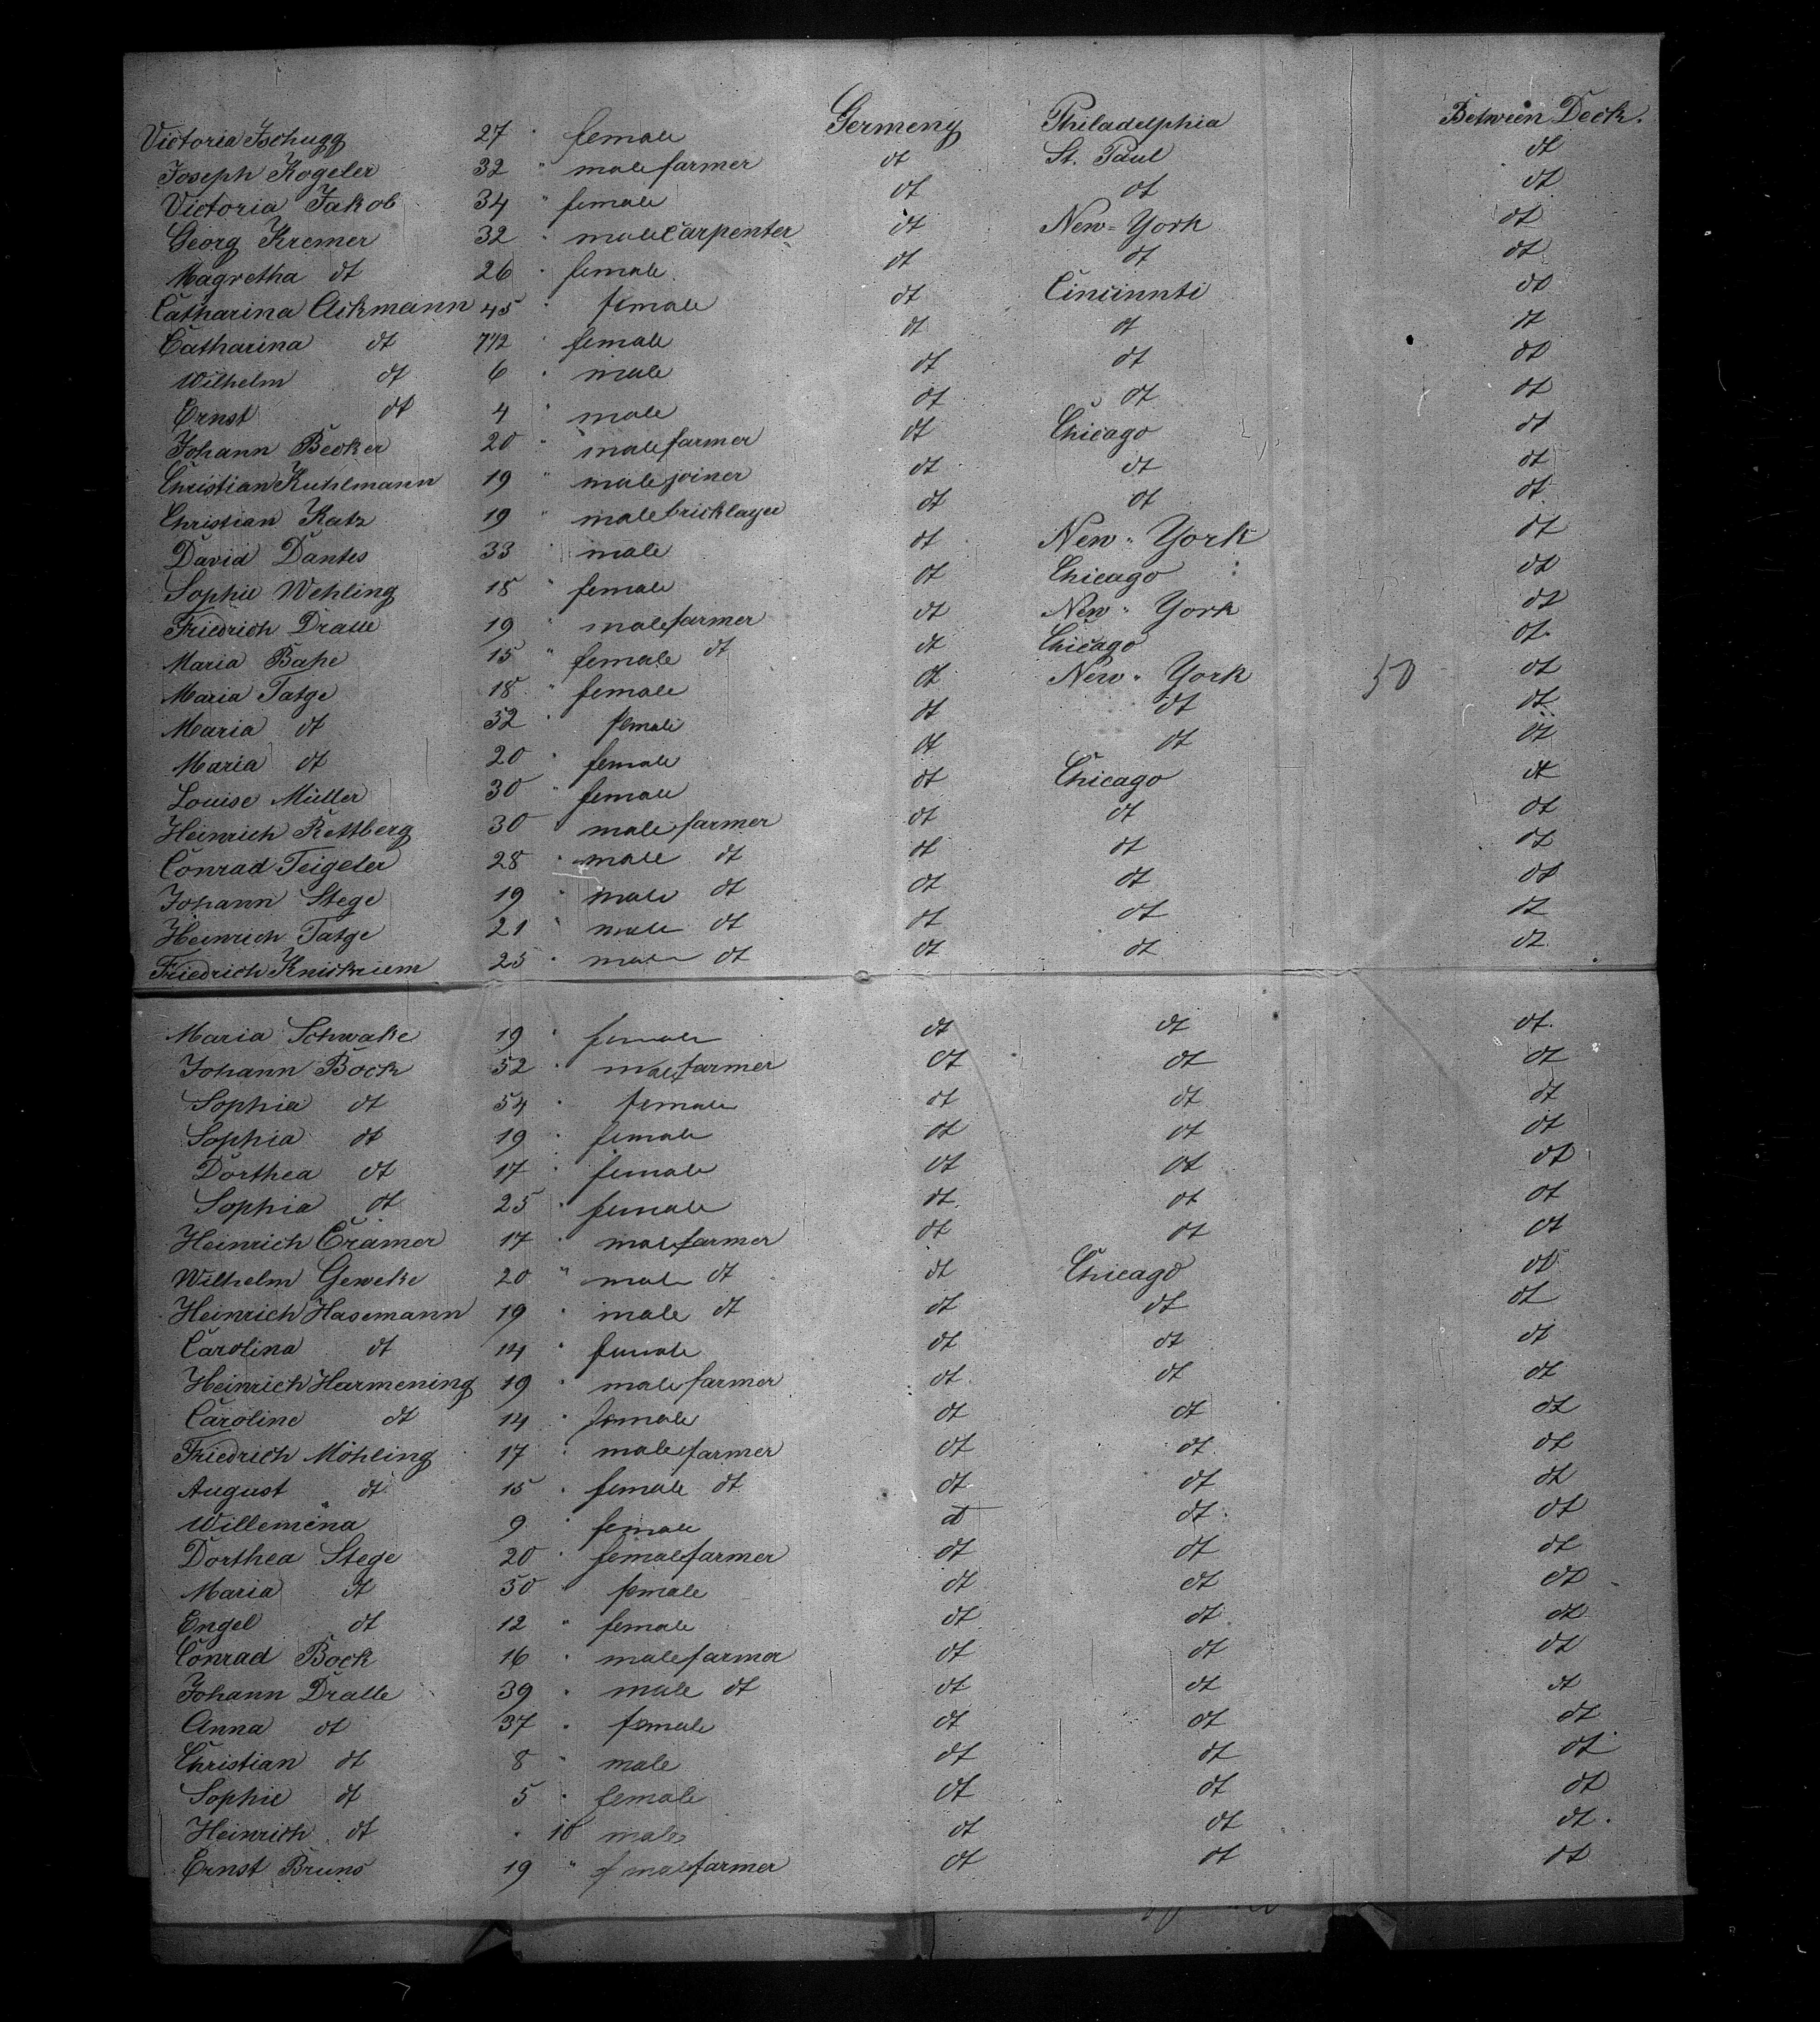 Victoria Tschugg 27 " female Germeny Philadelphia Between Deck.
Joseph Kogeler 32 " male farmer dt St. Paul dt
Victoria Jakob 34 " female dt dt dt
Georg Kremer 32 " male Carpenter dt New-York dt
Magretha dt 26 " female dt dt dt
Catharina Ackmann 45 " female dt Cincinnti dt
Catharina dt 7 1/2 " female dt dt dt
Wilhelm dt 6 " male dt dt dt
Ernst dt 4 " male dt dt dt
Johann Becker 20 " male farmer dt Chicago dt
Christian Kuhlmann 19 " male joiner dt dt dt
Christian Katz 19 " male bricklayer dt dt dt
David Dantes 33 " male dt New-York dt
Sophie Wehling 18 " female dt Chicago dt
Friedrich Dralle 19 " male farmer dt New-York dt
Maria Bahe 15 " female dt dt Chicago dt
Maria Tatge 18 " female dt New-York 50 dt
Maria dt 52 " female dt dt dt
Maria dt 20 " female dt dt dt
Louise Müller 30 " female dt Chicago dt
Heinrich Rettberg 30 " male farmer dt dt dt
Conrad Teigeler 28 " male dt dt dt dt
Johann Stege 19 " male dt dt dt dt
Heinrich Tatge 21 " male dt dt dt dt
Friedrich Knickriem 25 " male dt dt dt dt
Maria Schwake 19 " female dt dt dt
Johann Bock 52 " male farmer dt dt dt
Sophia dt 54 " female dt dt dt
Sophia dt 19 " female dt dt dt
Dorthea dt 17 " female dt dt dt
Sophia dt 25 " female dt dt dt
Heinrich Cramer 17 " male farmer dt dt dt
Wilhelm Geweke 20 " male dt dt Chicago dt
Heinrich Hasemann 19 " male dt dt dt dt
Carolina dt 14 " female dt dt dt
Heinrich Harmening 19 " male farmer dt dt dt
Caroline dt 14 " female dt dt dt
Friedrich Möhling 17 " male farmer dt dt dt
August dt 15 " female dt dt dt dt
Willemena " 9 " female dt dt dt
Dorthea Stege 20 " female farmer dt dt dt
Maria dt 50 " female dt dt dt
Engel dt 12 " female dt dt dt
Conrad Bock 16 " male farmer dt dt dt
Johann Dralle 39 " male dt dt dt dt
Anna dt 37 " female dt dt dt
Christian dt 8 " male dt dt dt
Sophie dt 5 " female dt dt dt
Heinrich dt " 10 male dt dt dt
Ernst Bruns 19 " f male farmer dt dt dt